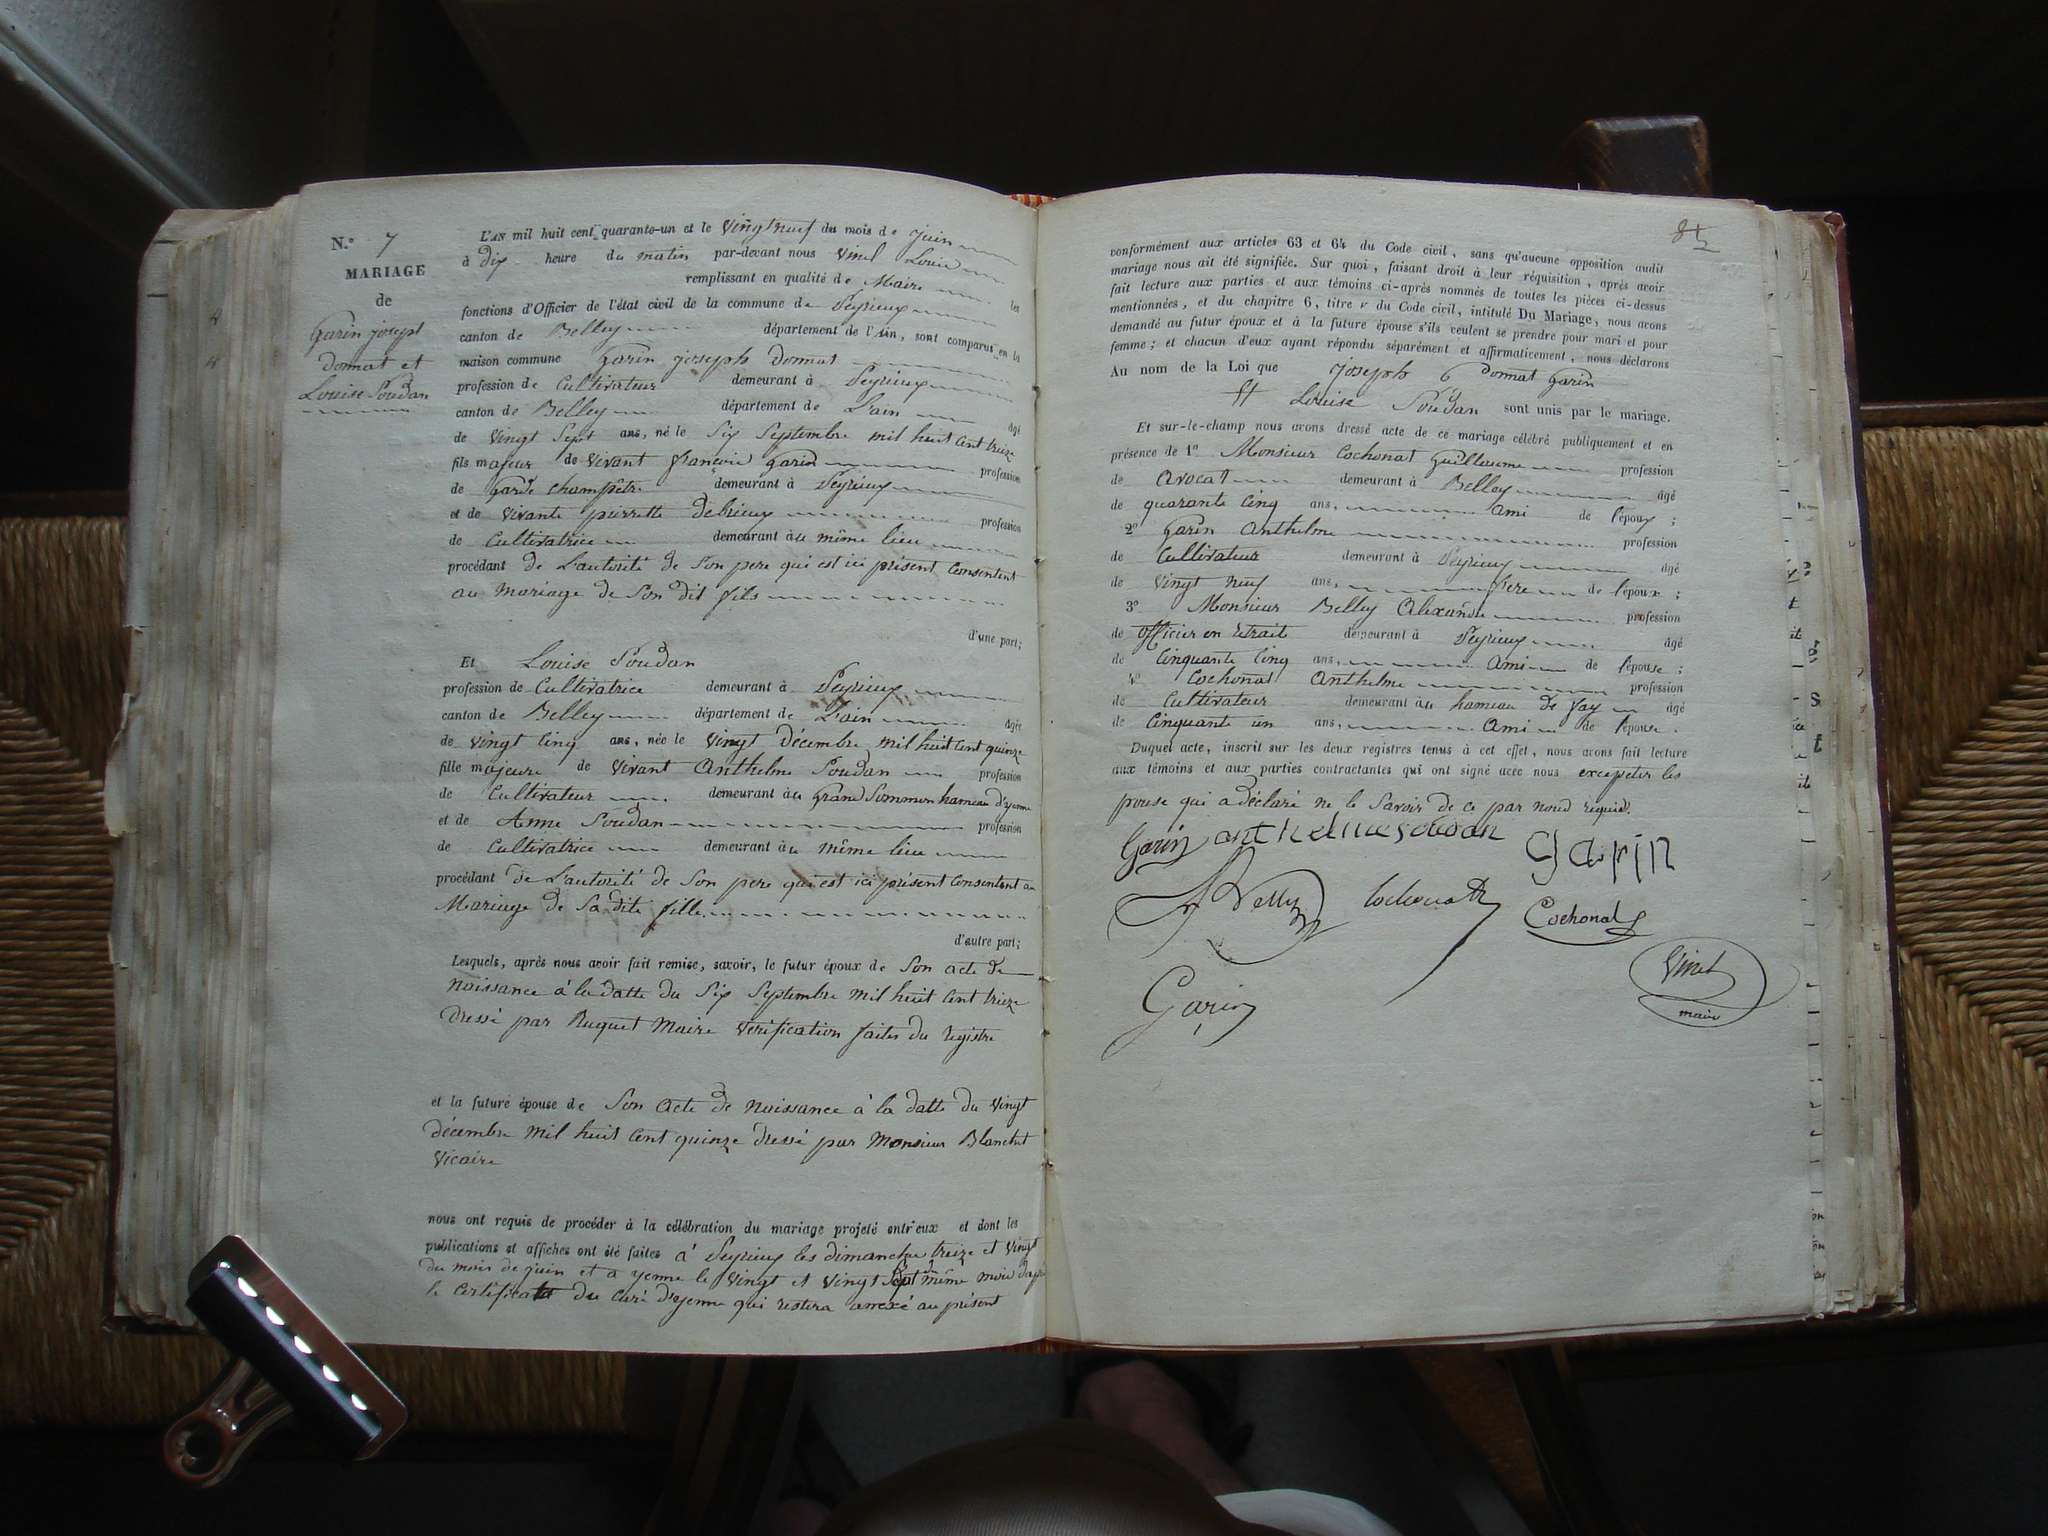 N.° 7
MARIAGE
de
Garin joseph
donnat et
Louise Soudan
L'AN mil huit cent quarante-un et le vingt neuf du mois de juin
à dix heure du matin par-devant nous Vinel Louis
remplissant en qualité de Maire les
fonctions d'Officier de l'état civil de la commune de Peyrieux
canton de Belley département de l'Ain, sont comparus en la
maison commune Garin joseph donnat
profession de Cultivateur demeurant à Peyrieux
canton de Belley département de L'ain âgé
de vingt Sept ans, né le Six Septembre mil huit Cent treize
fils majeur de vivant françois Garin profession
de Garde champêtre demeurant à Peyrieux
et de vivante pierrette debrieux profession
de Cultivatrice demeurant au même lieu
procédant de L'autorité de Son pere qui est ici présent Consentent
au mariage de Son dit fils
d'une part;
Et Louise Soudan
profession de Cultivatrice demeurant à Peyrieux
canton de Belley département de L'ain âgée
de vingt Cinq ans, née le vingt décembre mil huit Cent quinze
fille majeure de vivant Anthelme Soudan profession
de Cultivateur demeurant au Grand Sommon hameau d'yenne
et de Anne Soudan profession
de Cultivatrice demeurant au même lieu
procédant de L'autorité de Son pere qui est ici présent Consentent au
Mariage de Sa dite fille
d'autre part;
Lesquels, après nous avoir fait remise, savoir, le futur époux de Son acte de
Naissance à la datte du Six Septembre mil huit Cent treize
dressé par Ruquet Maire vérification faites du registre
et la future épouse de Son Acte de Naissance à la datte du vingt
décembre mil huit Cent quinze dressé par Monsieur Blanchet
Vicaire
nous ont requis de procéder à la célébration du mariage projeté entr'eux et dont les
publications et affiches ont été faites à Peyrieux les dimanche treize et vingt
du mois de juin et a yenne le vingt et vingt Sept du même mois
le Certificat du Curé d'yenne qui restera annexé au présent
conformément aux articles 63 et 64 du Code civil, sans qu'aucune opposition audit
mariage nous ait été signifiée. Sur quoi, faisant droit à leur réquisition, après avoir
fait lecture aux parties et aux témoins ci-après nommés de toutes les pièces ci-dessus
mentionnées, et du chapitre 6, titre v du Code civil, intitulé Du Mariage, nous avons
demandé au futur époux et à la future épouse s'ils veulent se prendre pour mari et pour
femme; et chacun d'eux ayant répondu séparément et affirmativement, nous déclarons
Au nom de la Loi que joseph donnat Garin
Et Louise Soudan sont unis par le mariage.
Et sur-le-champ nous avons dressé acte de ce mariage célébré publiquement et en
présence de 1° Monsieur Cochonat Guillaume profession
de Avocat demeurant à Belley âgé
de quarante Cinq ans, Ami de l'époux;
2° Garin Anthelme profession
de Cultivateur demeurant à Peyrieux âgé
de vingt neuf ans, frère de l'époux;
3° Monsieur Belley Alexandre profession
de officier en retraite demeurant à Peyrieux âgé
de Cinquante Cinq ans, Ami de l'épouse;
4° Cochonat Anthelme profession
de Cultivateur demeurant au hameau de fay âgé
de Cinquante un ans, Ami de l'épouse.
Duquel acte, inscrit sur les deux registres tenus à cet effet, nous avons fait lecture
aux témoins et aux parties contractantes qui ont signé avec nous excepter les
pouse qui a déclaré ne le Savoir de ce par nous requis.
Garin anthelme soudan garin
Belley Cochonat Cochonat
Vinel
maire
Garin